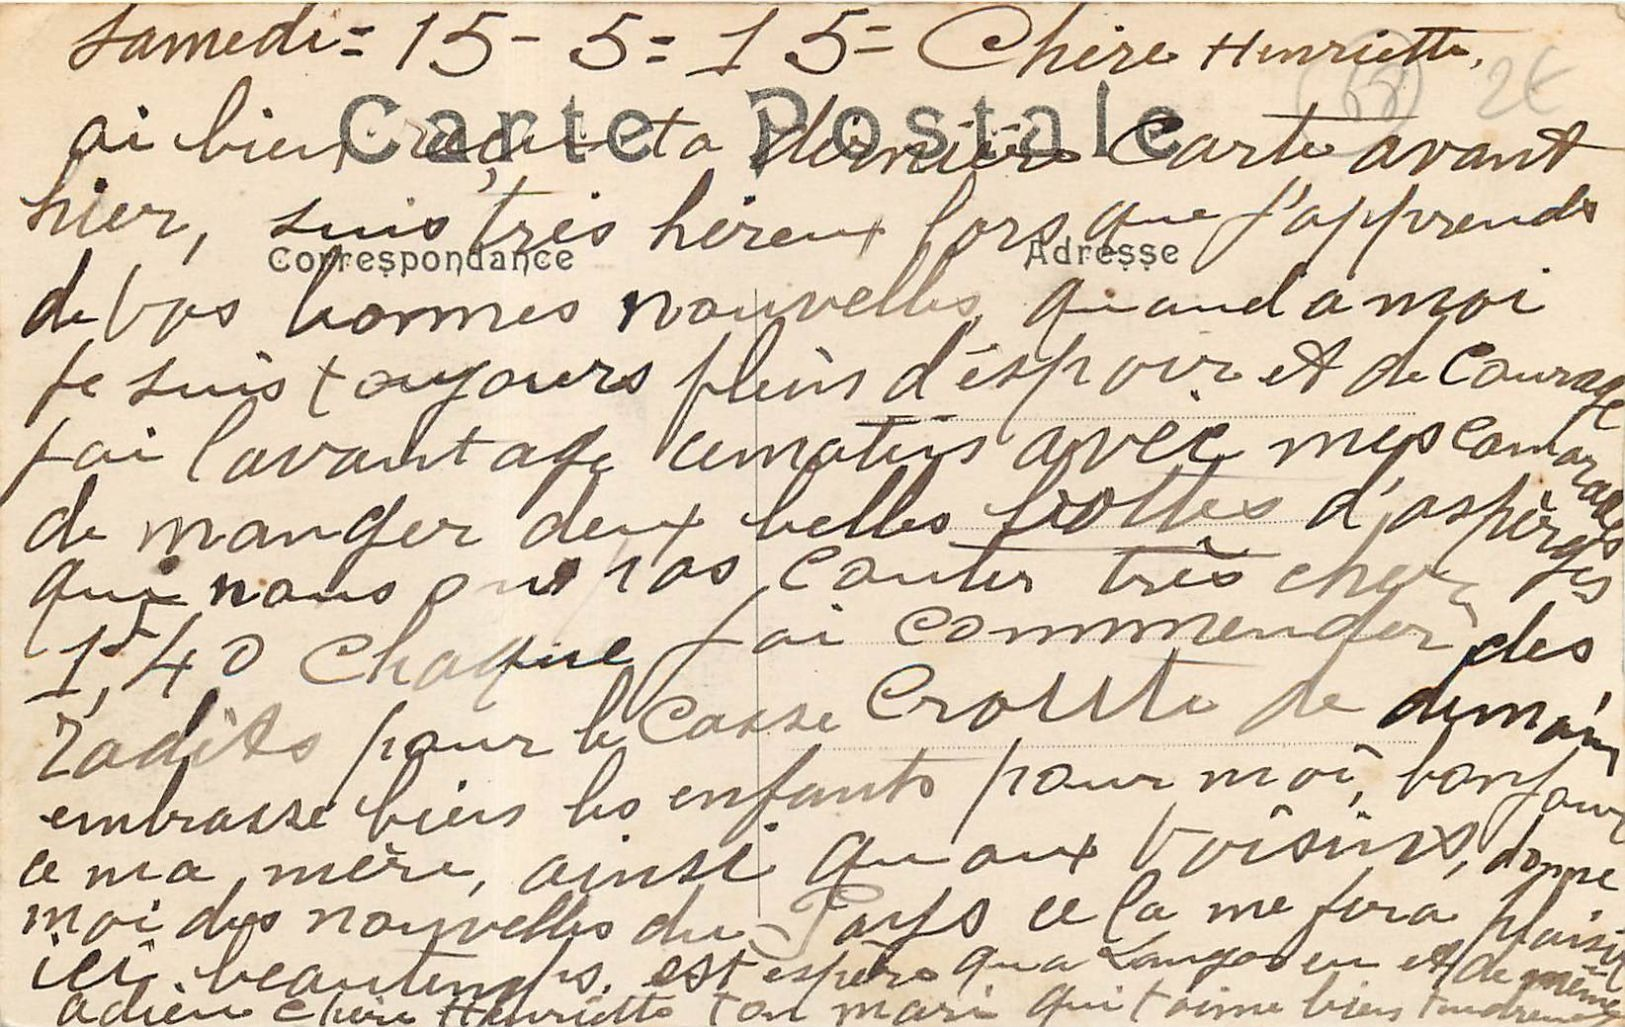 Samedi = 15 - 5 = 15 = Chère Henriette,
68 2€
Carte Postale
ai bien reçu ta dernière Carte avant
hier, suis très héreux lors que j'apprends
Correspondance Adresse
de vos bonnes nouvelles, quand a moi
je suis toujours plein d'éspoir et de Courage
j'ai lavantage cematin avec mes Camarades
de manger deux belles bottes d'aspèrges
qui nous ont pas couter très cher,
1,40 Chaque j'ai commender des
radits pour le Casse Croutte de demain
embrasse bien les enfants pour moi, bonjour
a ma mère, ainsi qu aux voisins, donne
moi des nouvelles du Pays ce la me fera plaisir
ici beautemps, est espère qua en et de même
adieu chère Henriette ton mari qui t'aime bien